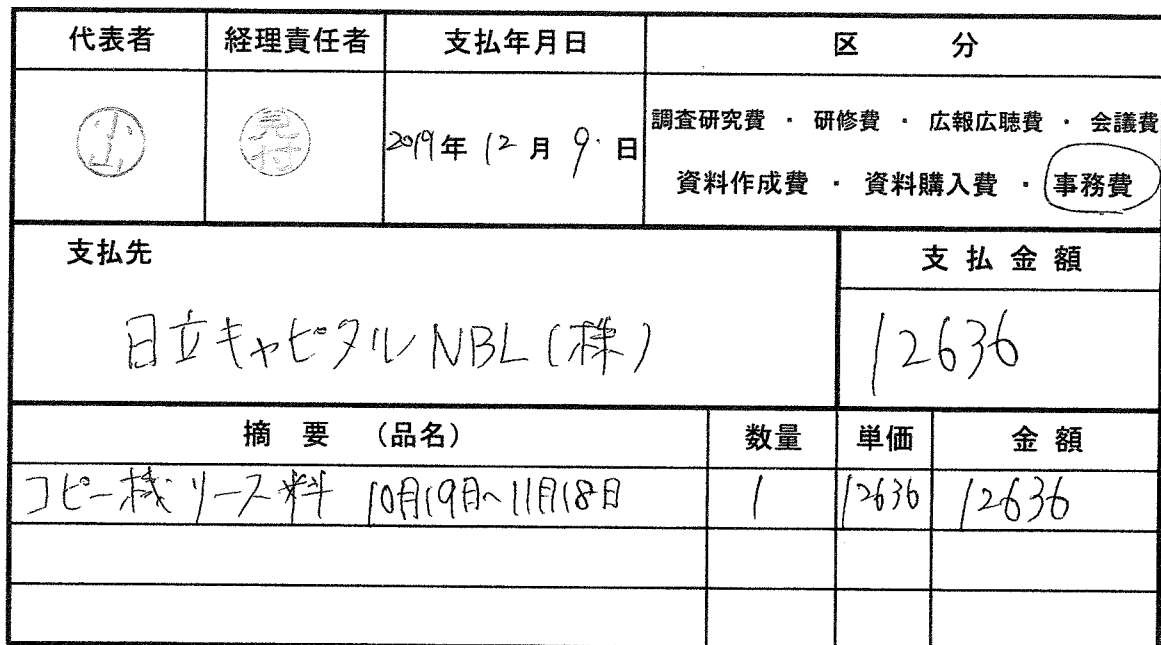 代表者 経理責任者 支払年月日 区 分
小山 見付 2019年 12月 9日 調査研究費 ・ 研修費 ・ 広報広聴費 ・ 会議費
資料作成費 ・ 資料購入費 ・ 事務費
支払先 支払金額
日立キャピタルNBL(株) 12636
摘 要 (品名) 数量 単価 金額
コピー機リース料 10月19日~11月18日 1 12636 12636